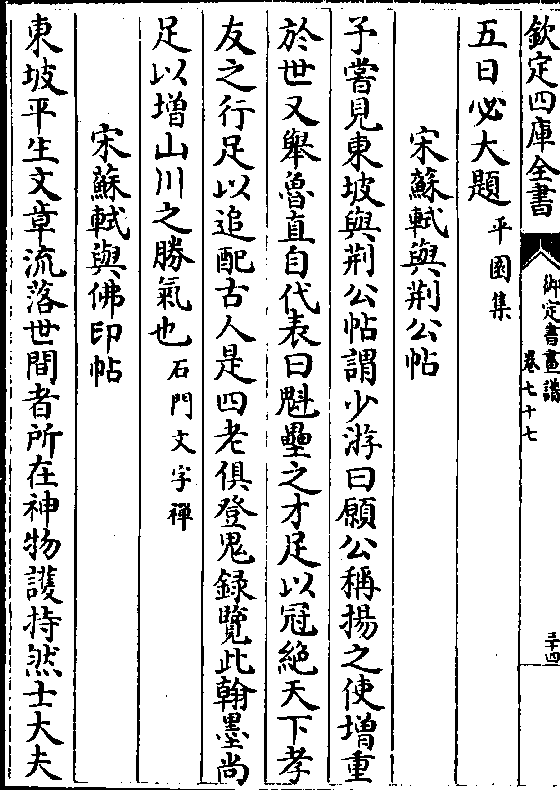 欽定四庫全書
御定書畫譜
卷七十七
三十四
五日必大題平園集
宋蘇軾與荆公帖
予嘗見東坡與荆公帖謂少游曰願公稱揚之使增重
於世又舉魯直自代表曰魁壘之才足以冠絶天下孝
友之行足以追配古人是四老俱登鬼録覽此翰墨尚
足以增山川之勝氣也石門文字禪
宋蘇軾與佛印帖
東坡平生文章流落世間者所在神物護持然士大夫